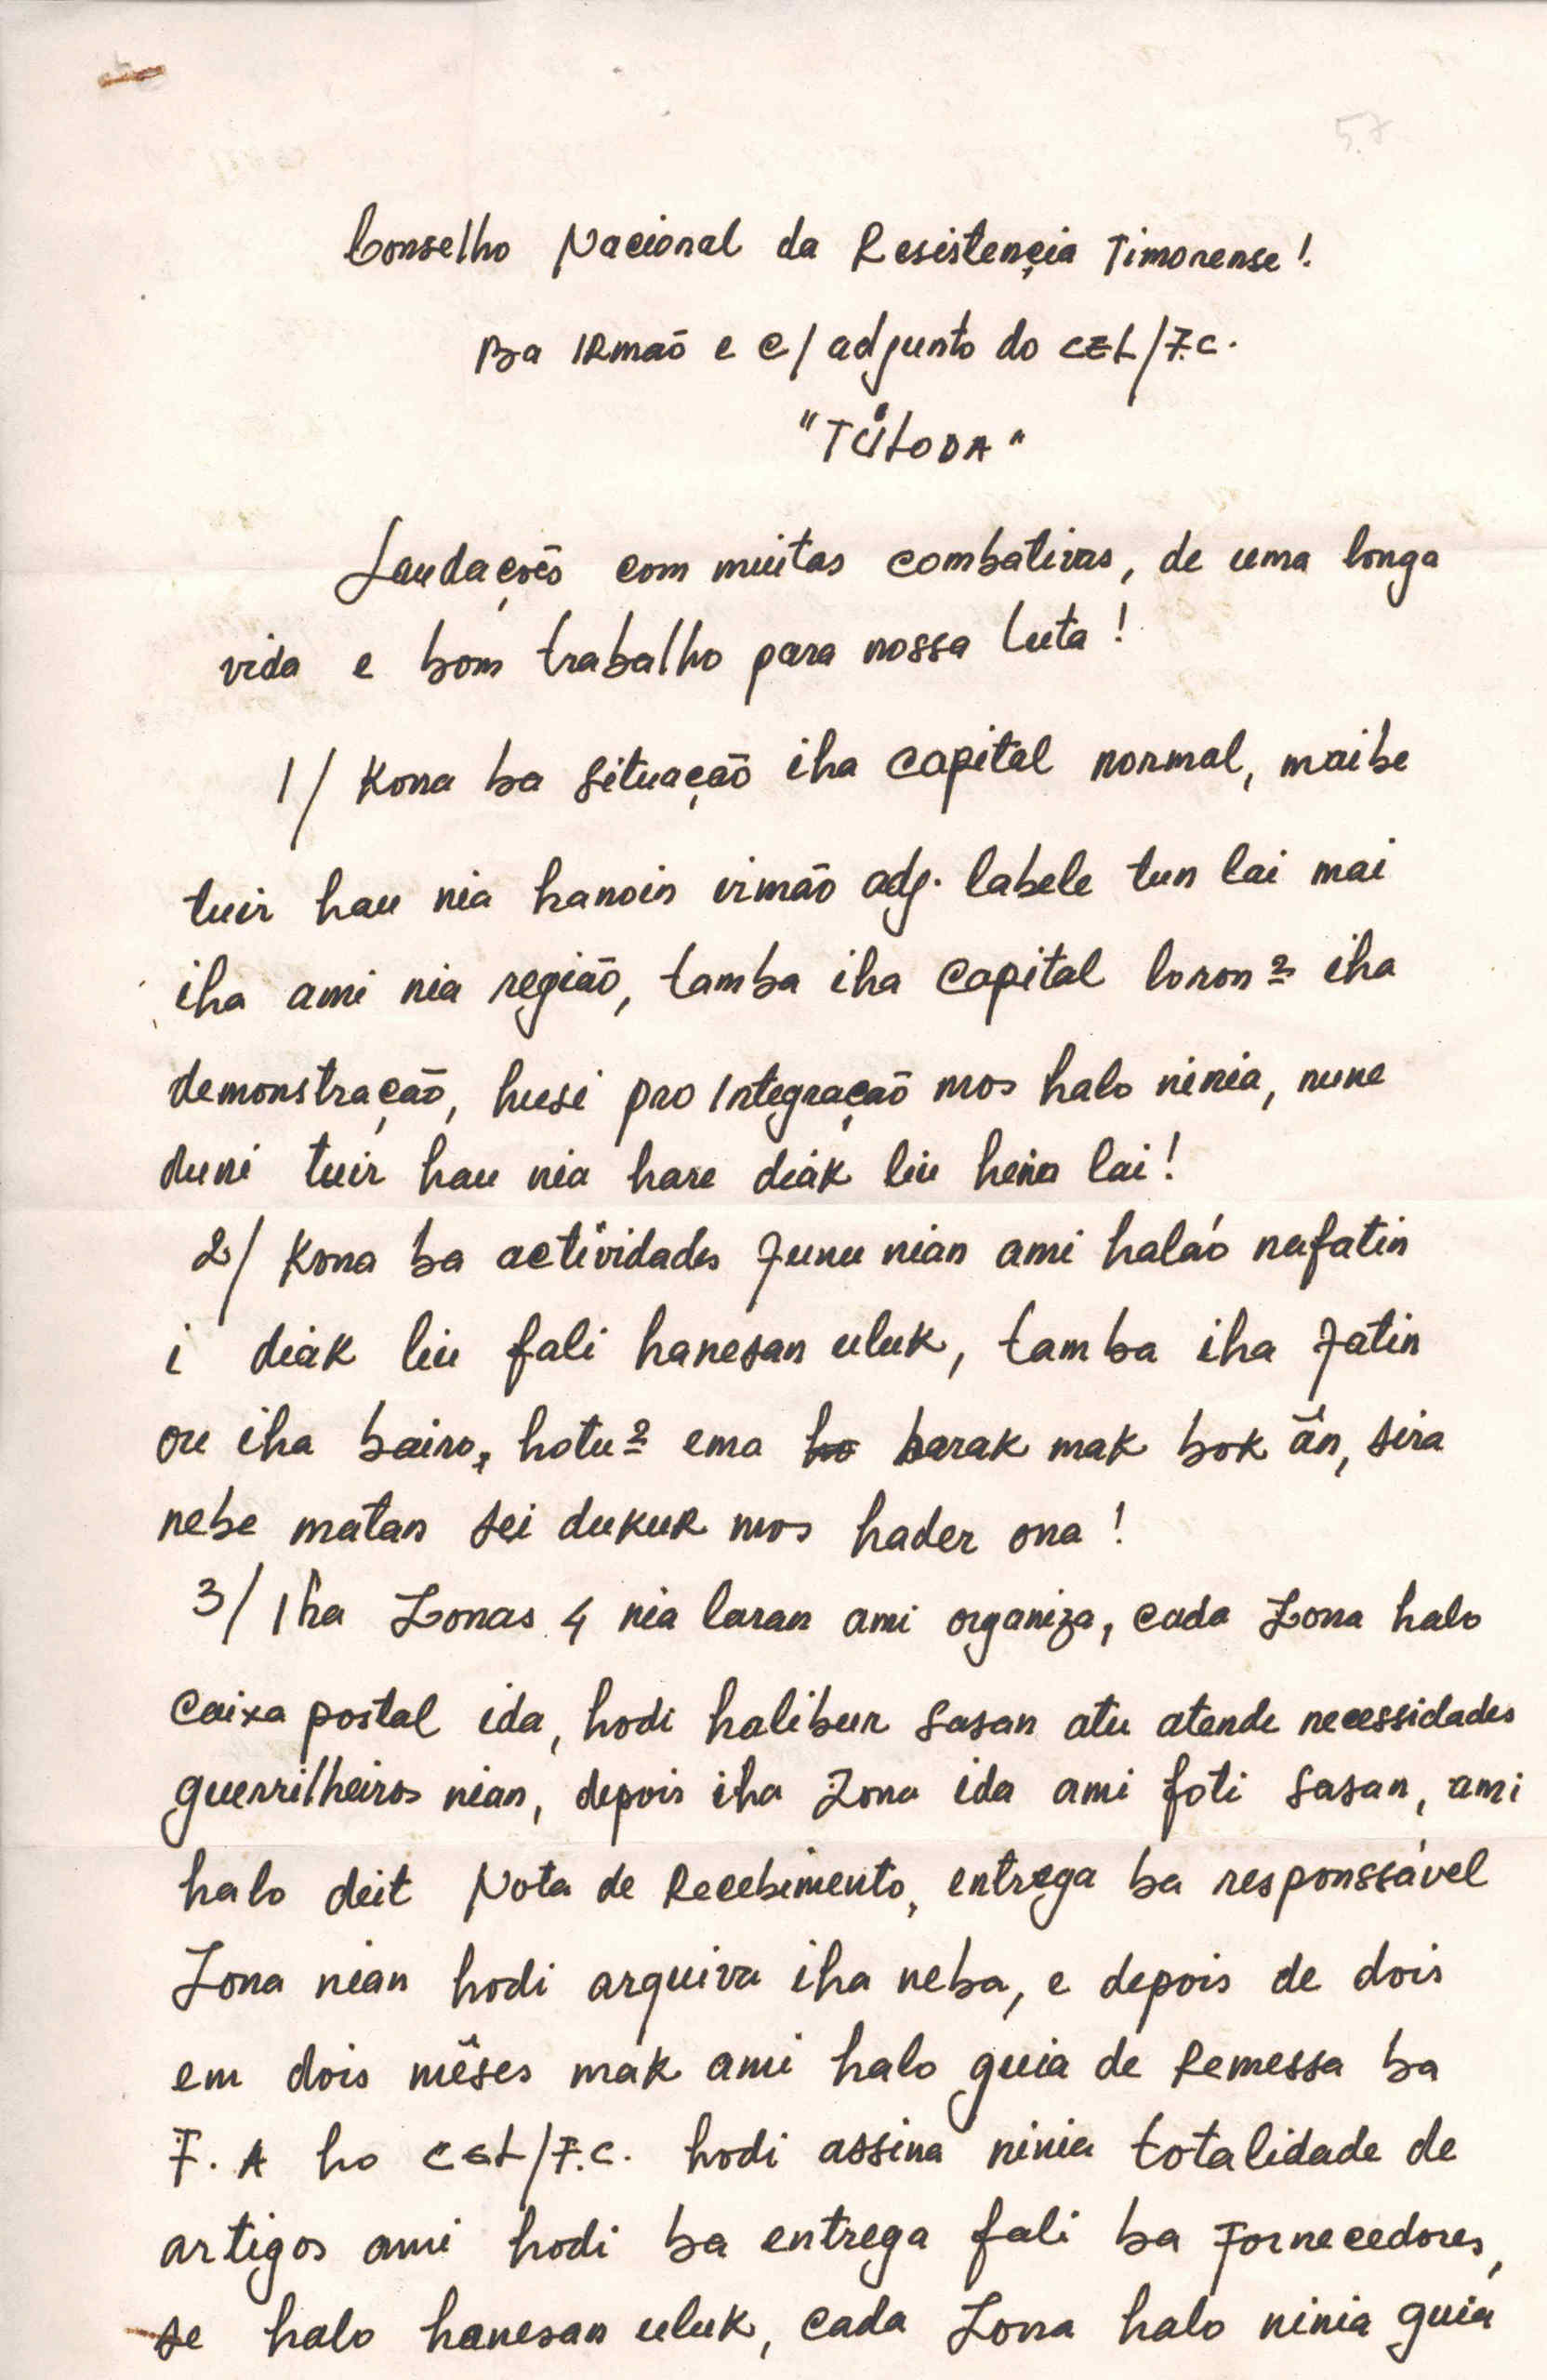 57
Conselho Nacional da Resistençia Timorense!.
Ba IRmaõ e C/ adjunto do CEL/F.C.
"TÜLODA"
Saudaçoẽs com muitas combativas, de uma longa
vida e bom trabalho para nossa luta!
1/ Kona ba situaçaõ iha capital normal, maibe
tuir hau nia hanoin irmão adj. labele tun lai mai
iha ami nia região, tamba iha Capital loron² iha
demonstraçaõ, husi pro Integraçaõ mos halo ninia, nune
duni tuir hau nia hare diák liu hein lai!
2/ Kona ba actividades Funu nian ami halaó nafatin
i diak liu fali hanesan uluk, tamba iha fatin
ou iha bairo, hotu² ema ho barak mak bok ãn, sira
nebe matan sei dukur mos hader ona!
3/ Iha Zonas 4 nia laran ami organiza, cada Zona halo
Caixa postal ida, hodi halibur sasan atu atende necessidades
guerrilheiros nian, depois iha Zona ida ami foti sasan, ami
halo deit Nota de Recebimento, entrega ba responssável
Zona nian hodi arquiva iha neba, e depois de dois
em dois mêses mak ami halo guia de Remessa ba
F. A ho CEL/F.C. hodi assina ninia totalidade de
artigos ami hodi ba entrega fali ba Fornecedores,
se halo hanesan uluk, cada Zona halo ninia guia